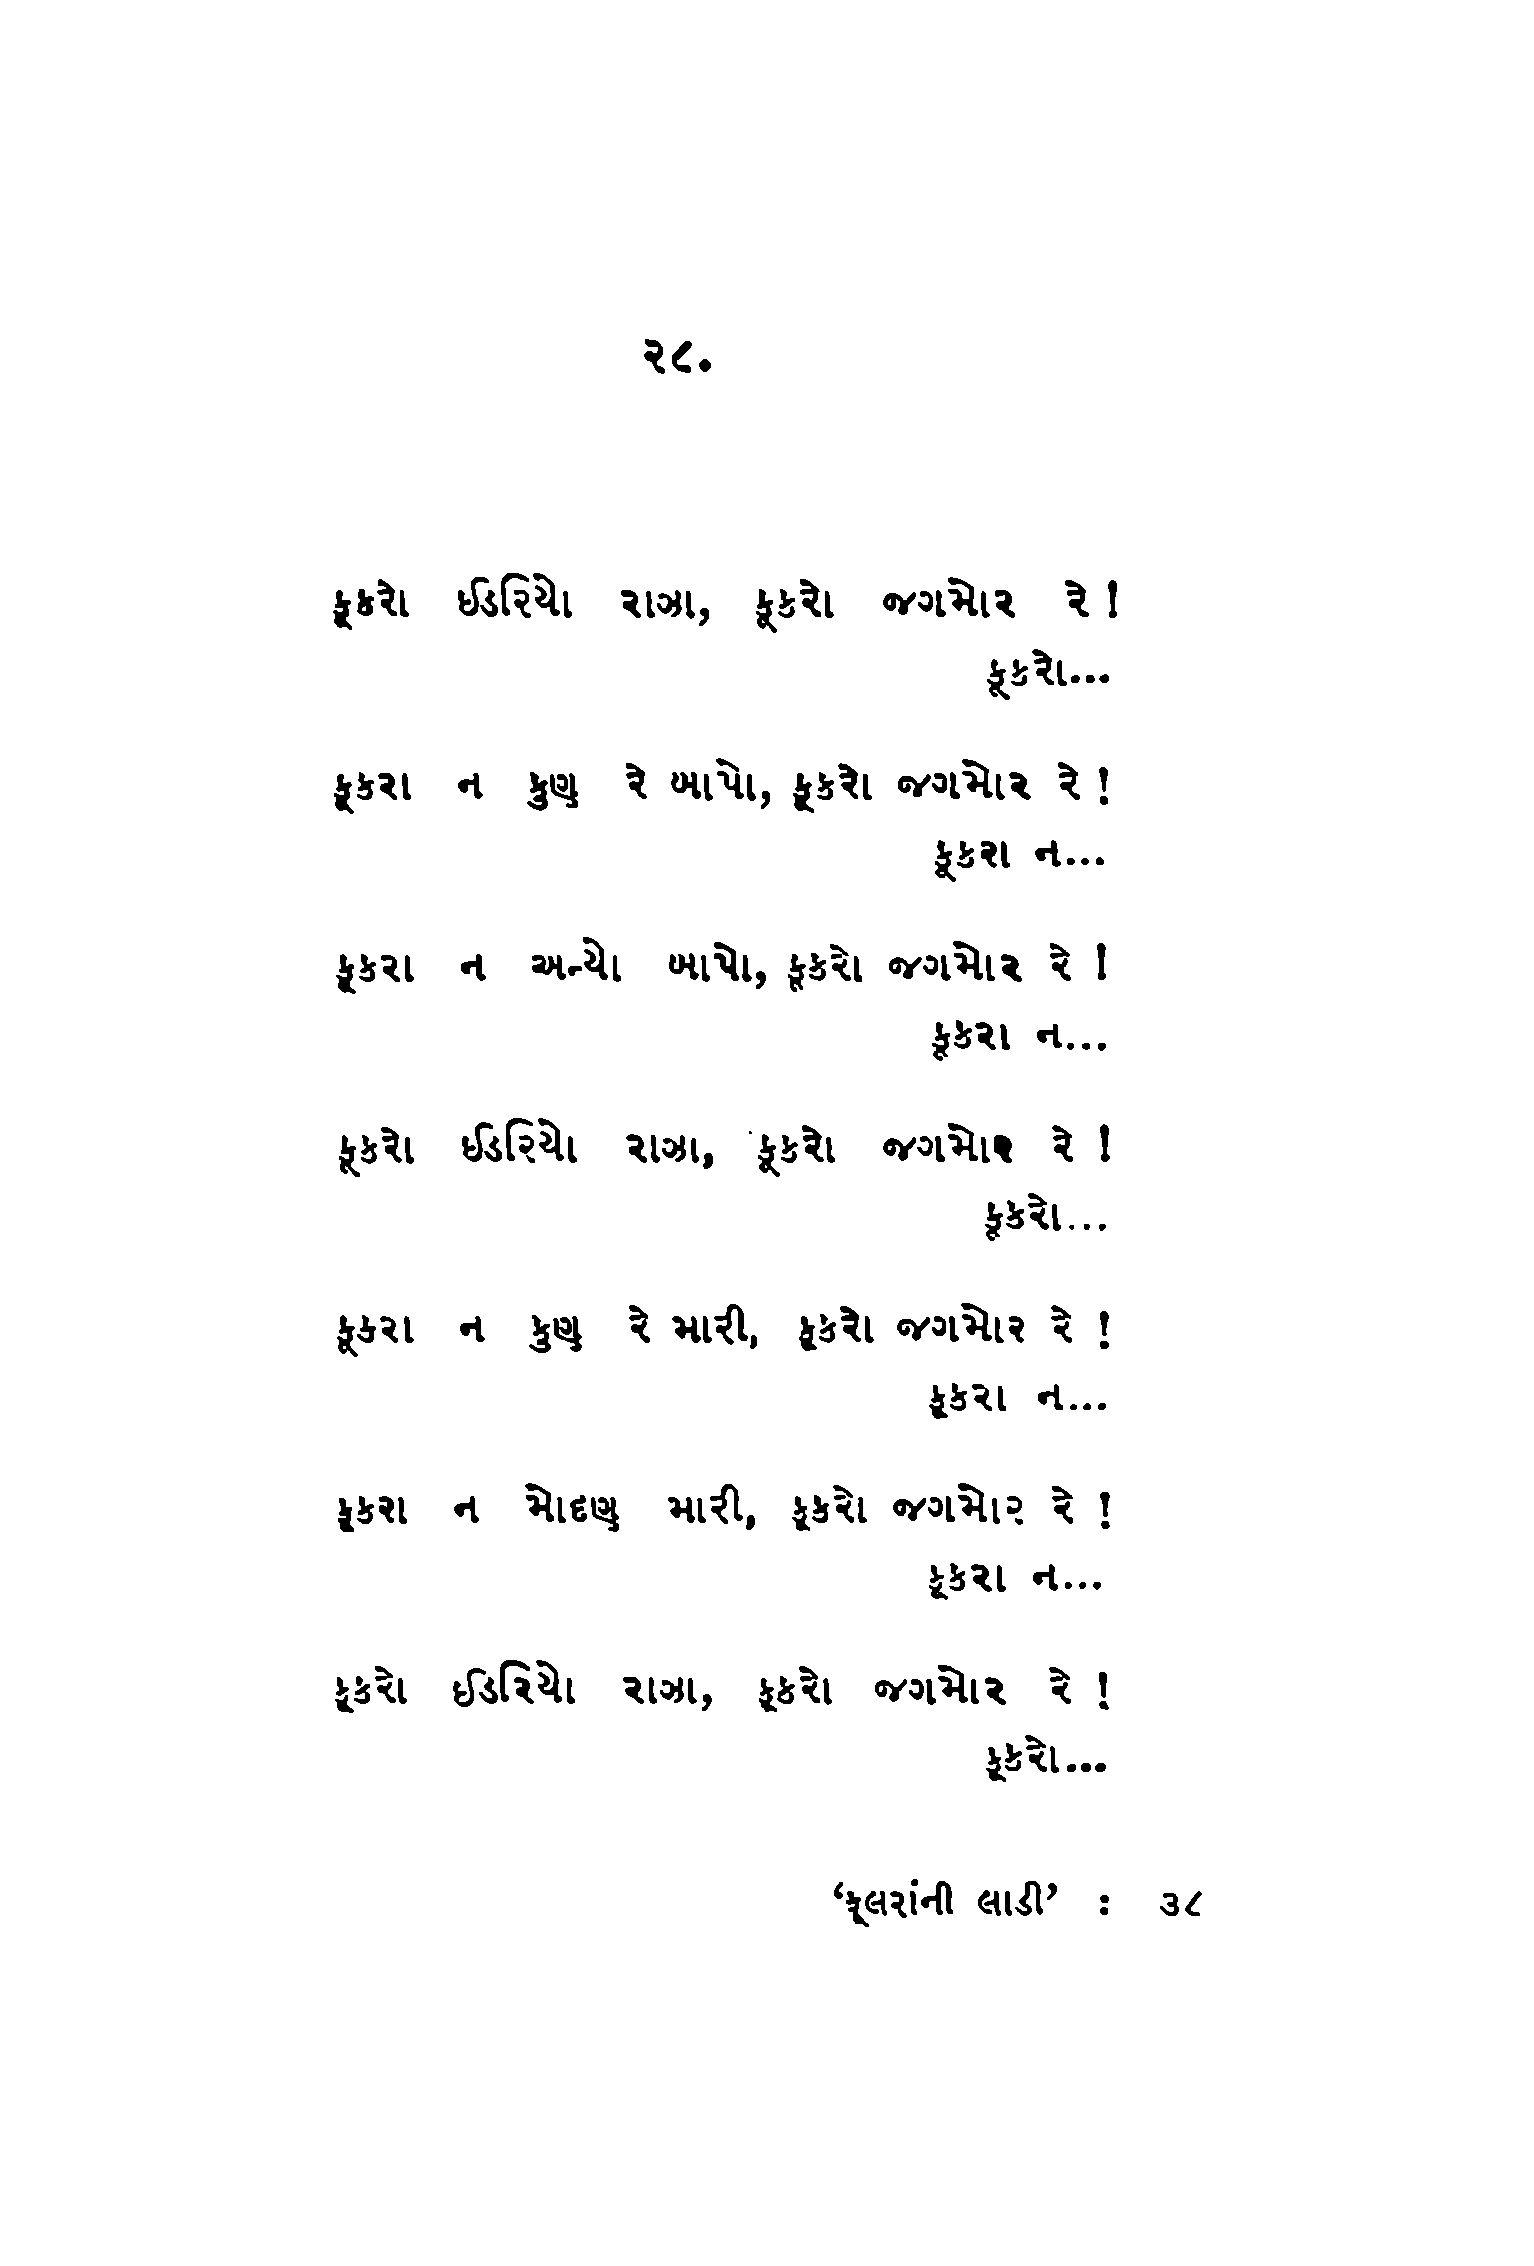 ૨૮.
કૂકરો ઈડરિયો રાઝા, કૂકરો જગમોર રે !
કૂકરો...
કૂકરા ન કુણ રે બાપો, કૂકરો જગમોર રે !
કૂકરા ન...
કૂકરા ન અન્યો બાપો, કૂકરો જગમોર રે !
કૂકરા ન...
કૂકરો ઈડરિયો રાઝા, કૂકરો જગમોર રે !
કૂકરો...
કૂકરા ન કુણ રે મારી, કૂકરો જગમોર રે !
કૂકરા ન...
કૂકરા ન મોદણ મારી, કૂકરો જગમોર રે !
કૂકરા ન...
કૂકરો ઈડરિયો રાઝા, કૂકરો જગમોર રે !
કૂકરો...
‘ફૂલરાંની લાડી’ : ૩૮